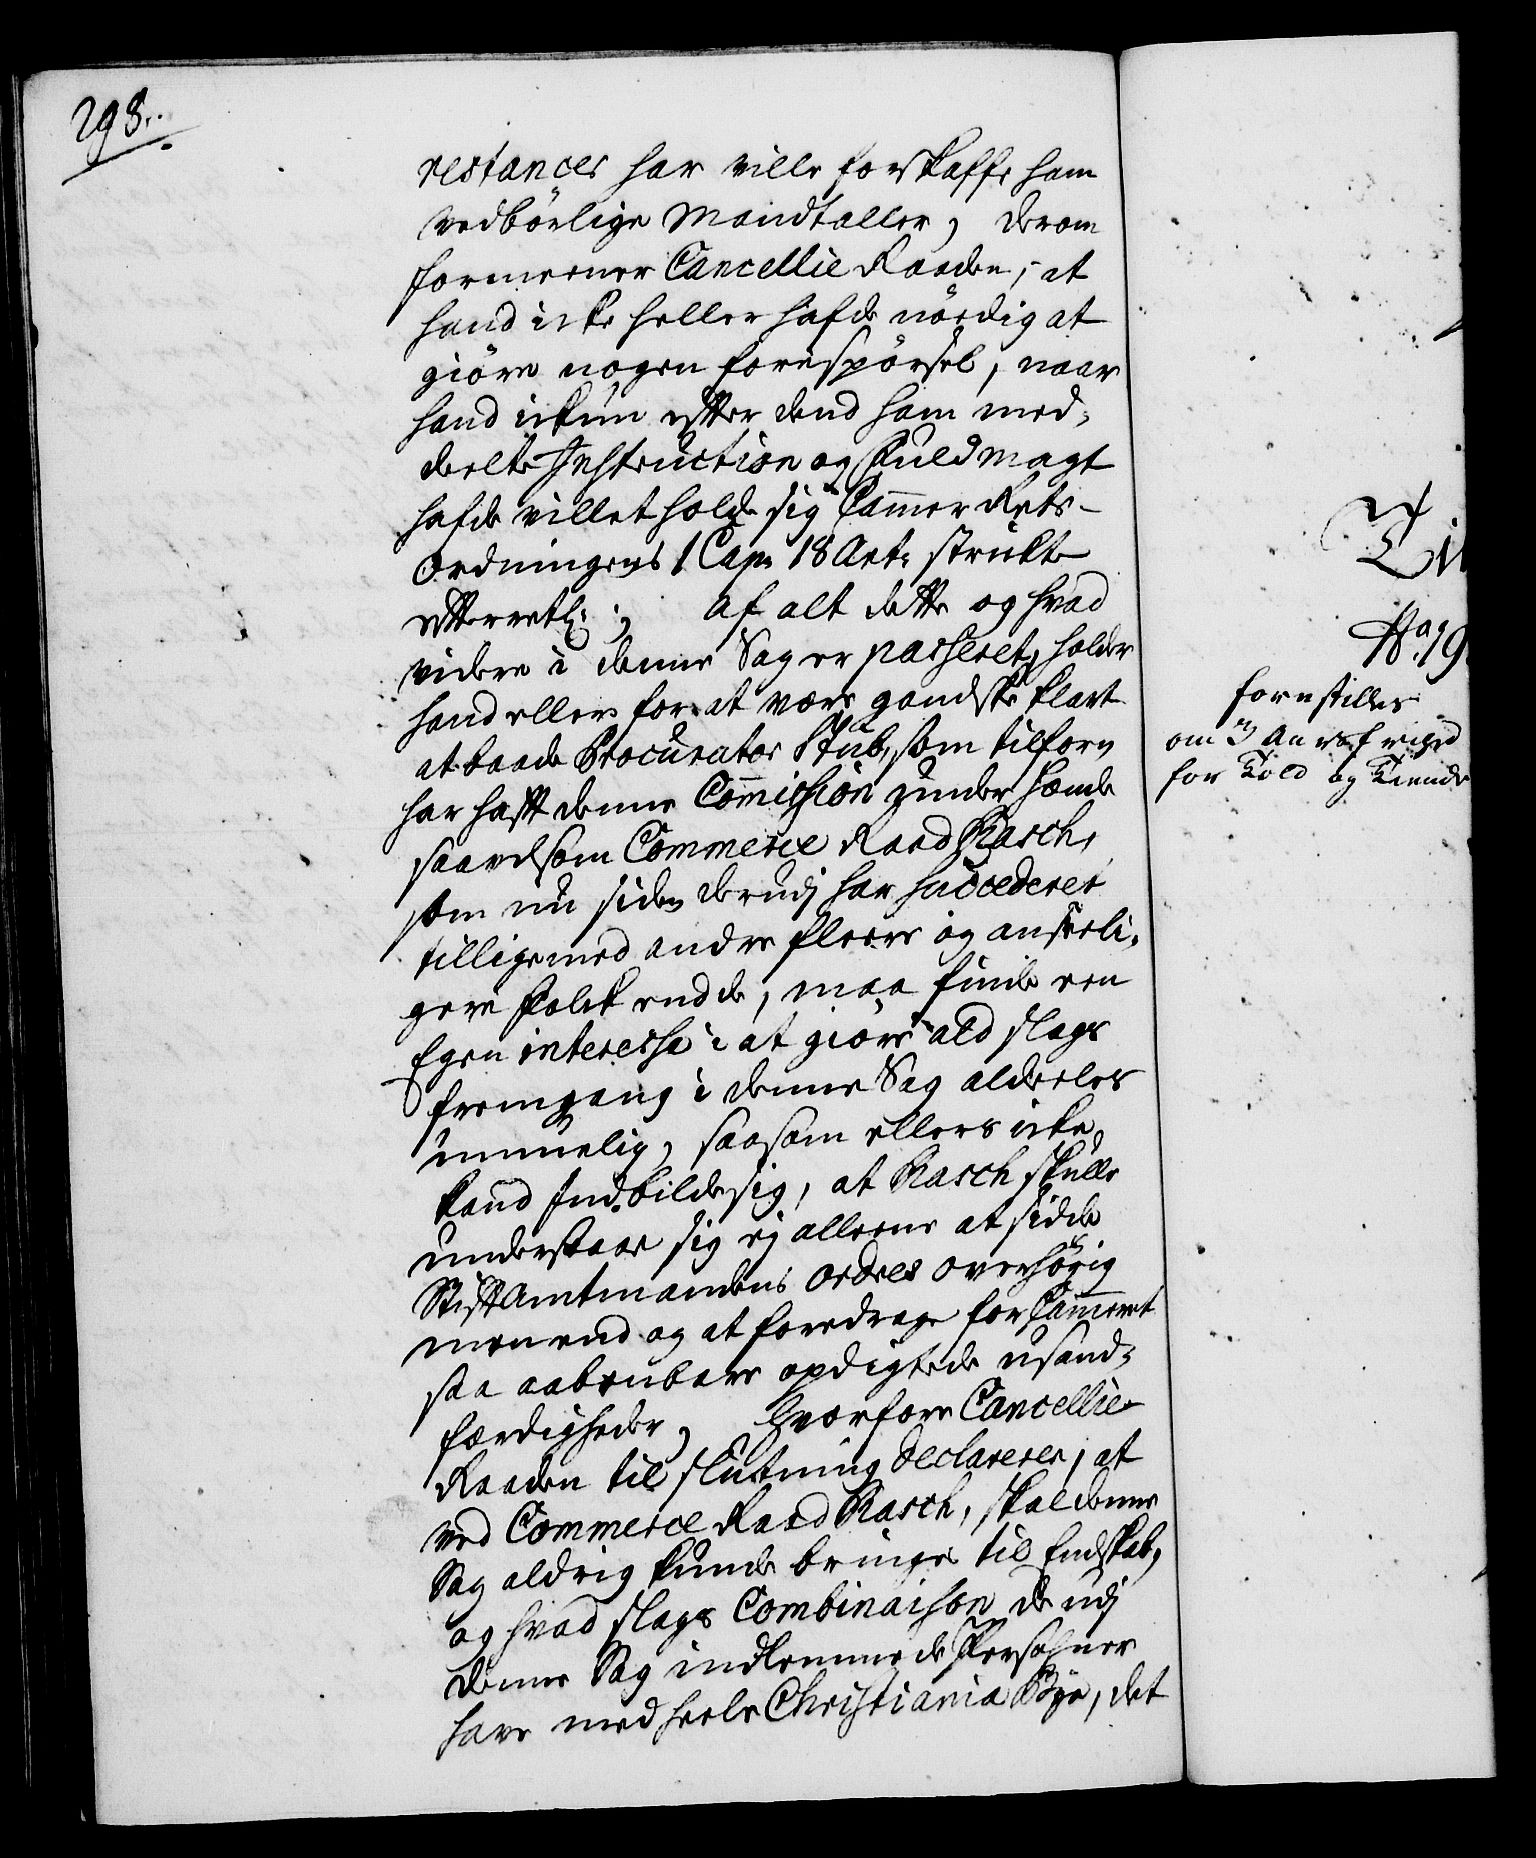 298.
restancer har ville forskaffe ham
vedbörlige Mandtaller, derom
formeener Cancellie Raaden, at
hand icke heller hafde nöedig at
giöre nogen forespörsel, naar
hand ickun efter dend ham med-
deelte Instruction og Fuldmagt
hafde villet holde sig Cammer Rets-
Ordningens 1 Cap. 18 Art. strickte
efterretl: ; af alt dette og hvad
videre i denne Sag er passeret, holder
hand ellers for at være gandske klart
at baade Procurator Stub, som tilforn
har hafft denne Commission under hænde
saavelsom Commerce Raad Rasch,
som nu siden derudj har succederet
tillige med andre fleere og anseeli-
gere Folk endde, maa finde een
Egen interesse i at giöre ald slags
fremgang i denne Sag aldeeles
umuelig, saasom ellers icke
kand Indbilde sig, at Rasch skulle
understaae sig ej alleene at sidde
Stiftamtmandens ordres overhörig
men end og at foredrage for Cammeret
saa aabenbare opdigtede usand-
færdigheder, hvorfore Cancellie
Raaden til slutning declarerer, at
ved Commerce Raad Rasch, skal denne
Sag aldrig kunde bringes til Endskab,
og hvad slags Combinaison de udj
denne Sag indlemmede Persohner
have med heele Christiania Bye, det
No. 19
forestilles
om 3 Aars friged
for Told og Tiende